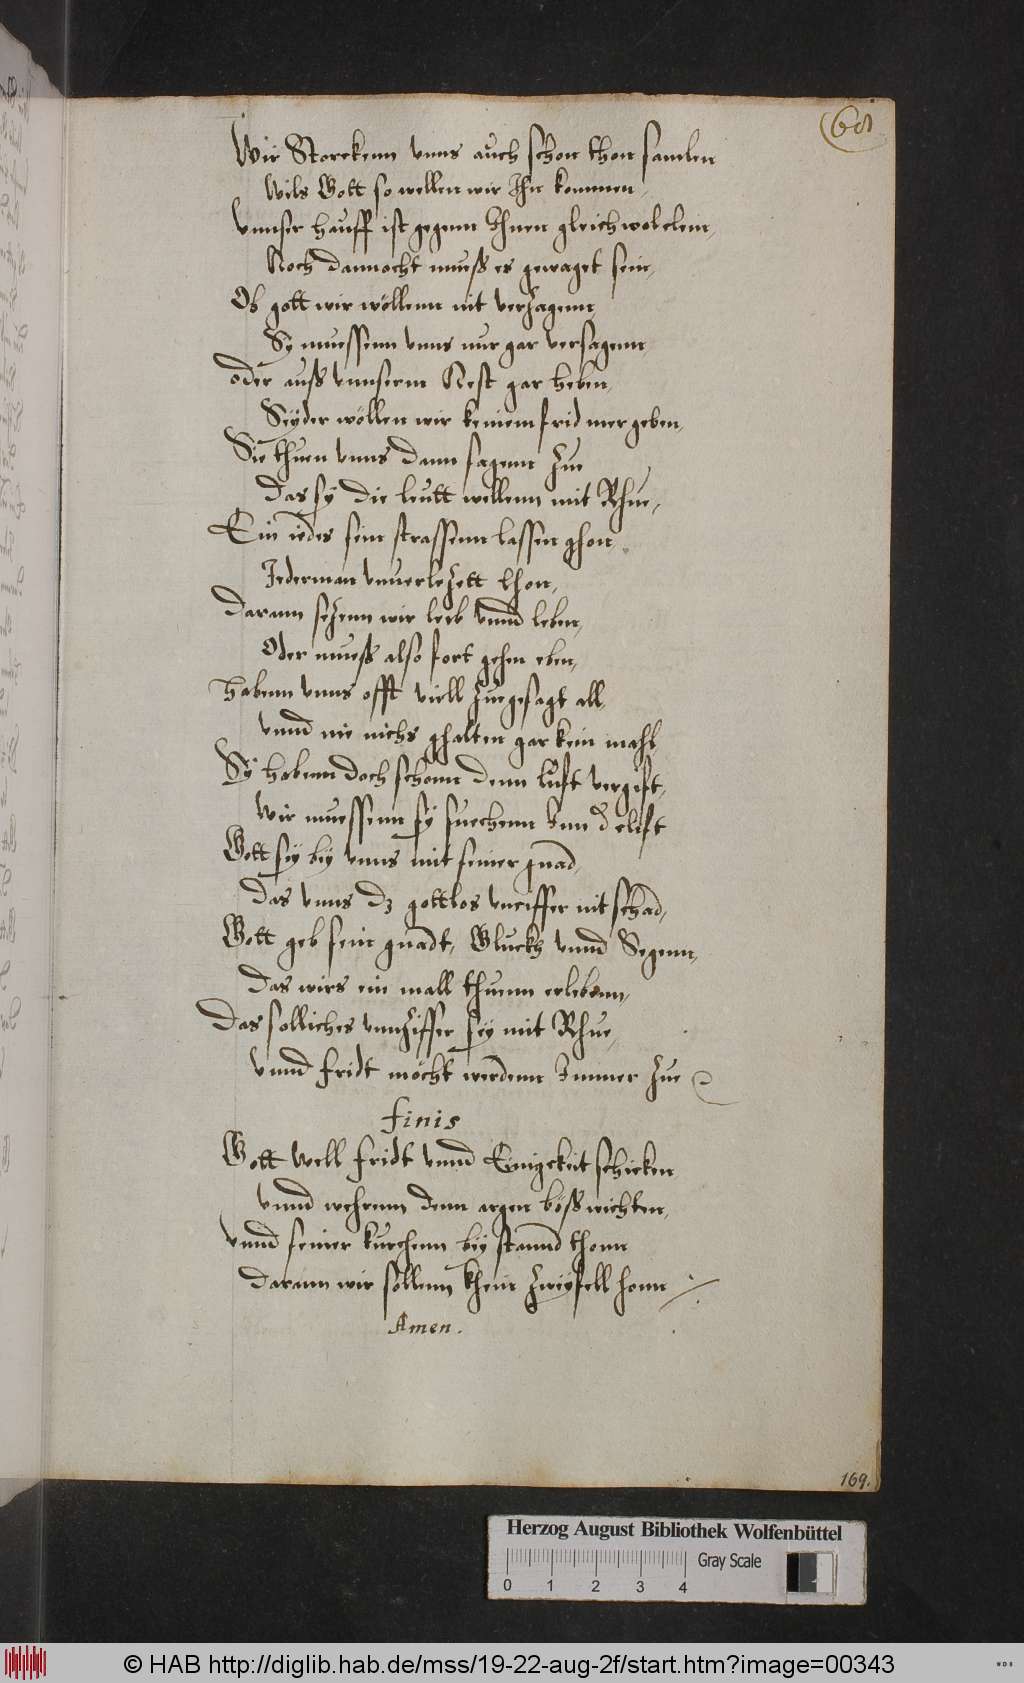 68
Wir Storckenn vnns auch schon thon samlen
Wils Gott so wellen wir Ihn kommen,
Vnnser hauff ist gegenn Ihnen gleich wol clein,
Noch dannocht muuß es gewaget sein,
Ob gott wir wöllenn nit verzagenn,
Sy muessenn vnns nur gar versagenn
oder auß vnnserm Nest gar heben,
Seyder wöllen wir keinem frid mer geben,
Sie thuen vnns dann sagenn zue
Das sÿ die leutt wellenn mit Rhue,
Ein iedes sein strassenn lassen ghon,
Jederman vnuerlezett lhon,
Darann sezenn wir leib vnnd leben,
Oder mueß also fort gehn eben,
Habenn vnns offt viell zuegesagt all,
vnnd nie nichs ghalten gar kein mahl,
Sÿ habenn doch schonn denn luft vergift,
Wir muessenn sÿ suechenn Inn d cluft
Gott seÿ beÿ vnns mit seiner gnad,
Das vnns dz gottlos vnciffer nit schad,
Gott geb sein gnadt, Gluckh vnnd Segenn,
Das wirs ein mall thuenn erlebenn,
Das solliches vnnziffer seÿ mit Rhue,
Vnnd fridt möcht werdenn Immer zue
finis
Gott well fridt vnnd Einigekeit schicken,
vnnd wehrenn denn argen bößwichten,
Vnnd seiner kurchenn beÿstannd thonn
Darann wir sollenn khein zweÿfell honn
Amen.
169.
Herzog August Bibliothek Wolfenbüttel
Gray Scale
0 1 2 3 4
© HAB http://diglib.hab.de/mss/19-22-aug-2f/start.htm?image=00343